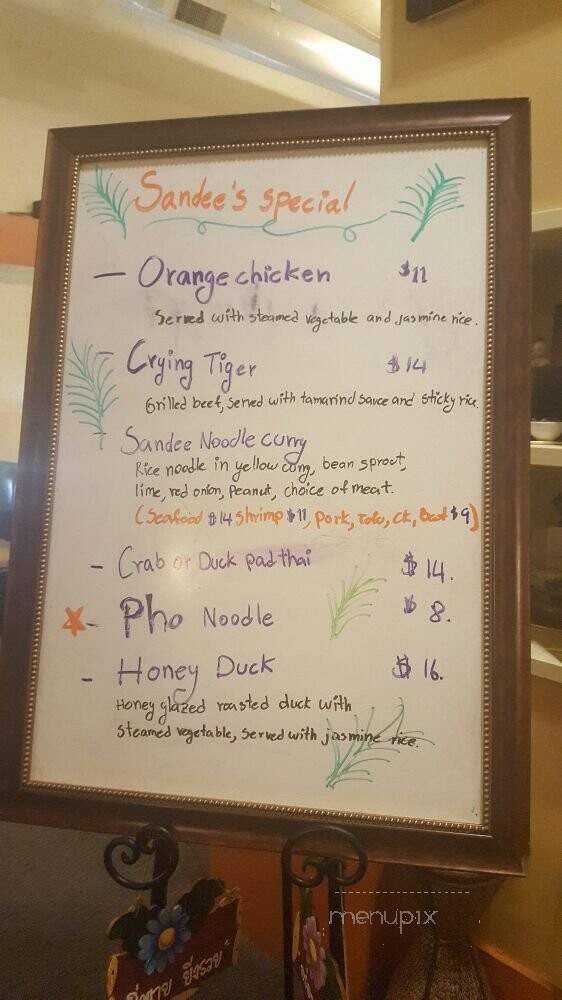 Sandee's special
— Orange chicken $11
Served with steamed vegetable and jasmine rice.
- Crying Tiger $14
Grilled beef, served with tamarind sauce and sticky rice.
- Sandee Noodle curry
Rice noodle in yellow curry, bean sprout,
lime, red onion, peanut, choice of meat.
(Seafood $14 Shrimp $11, Pork, Tofu, Ck, Beef $9)
- Crab or Duck pad thai $14.
- Pho Noodle $8.
- Honey Duck $16.
Honey glazed roasted duck with
steamed vegetable, served with jasmine rice.
menupix
ยิ่งรวย